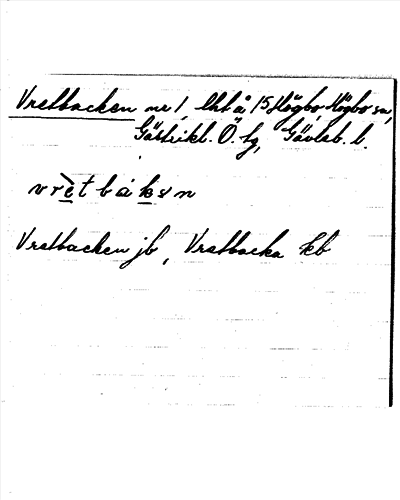 Vretbacken nr 1 lht å 15 Högbo, Högbo sn,
Gästrikl. Ö. tg, Gävleb. l.
vrètbákən
Vretbacken jb, Vretbacka kb